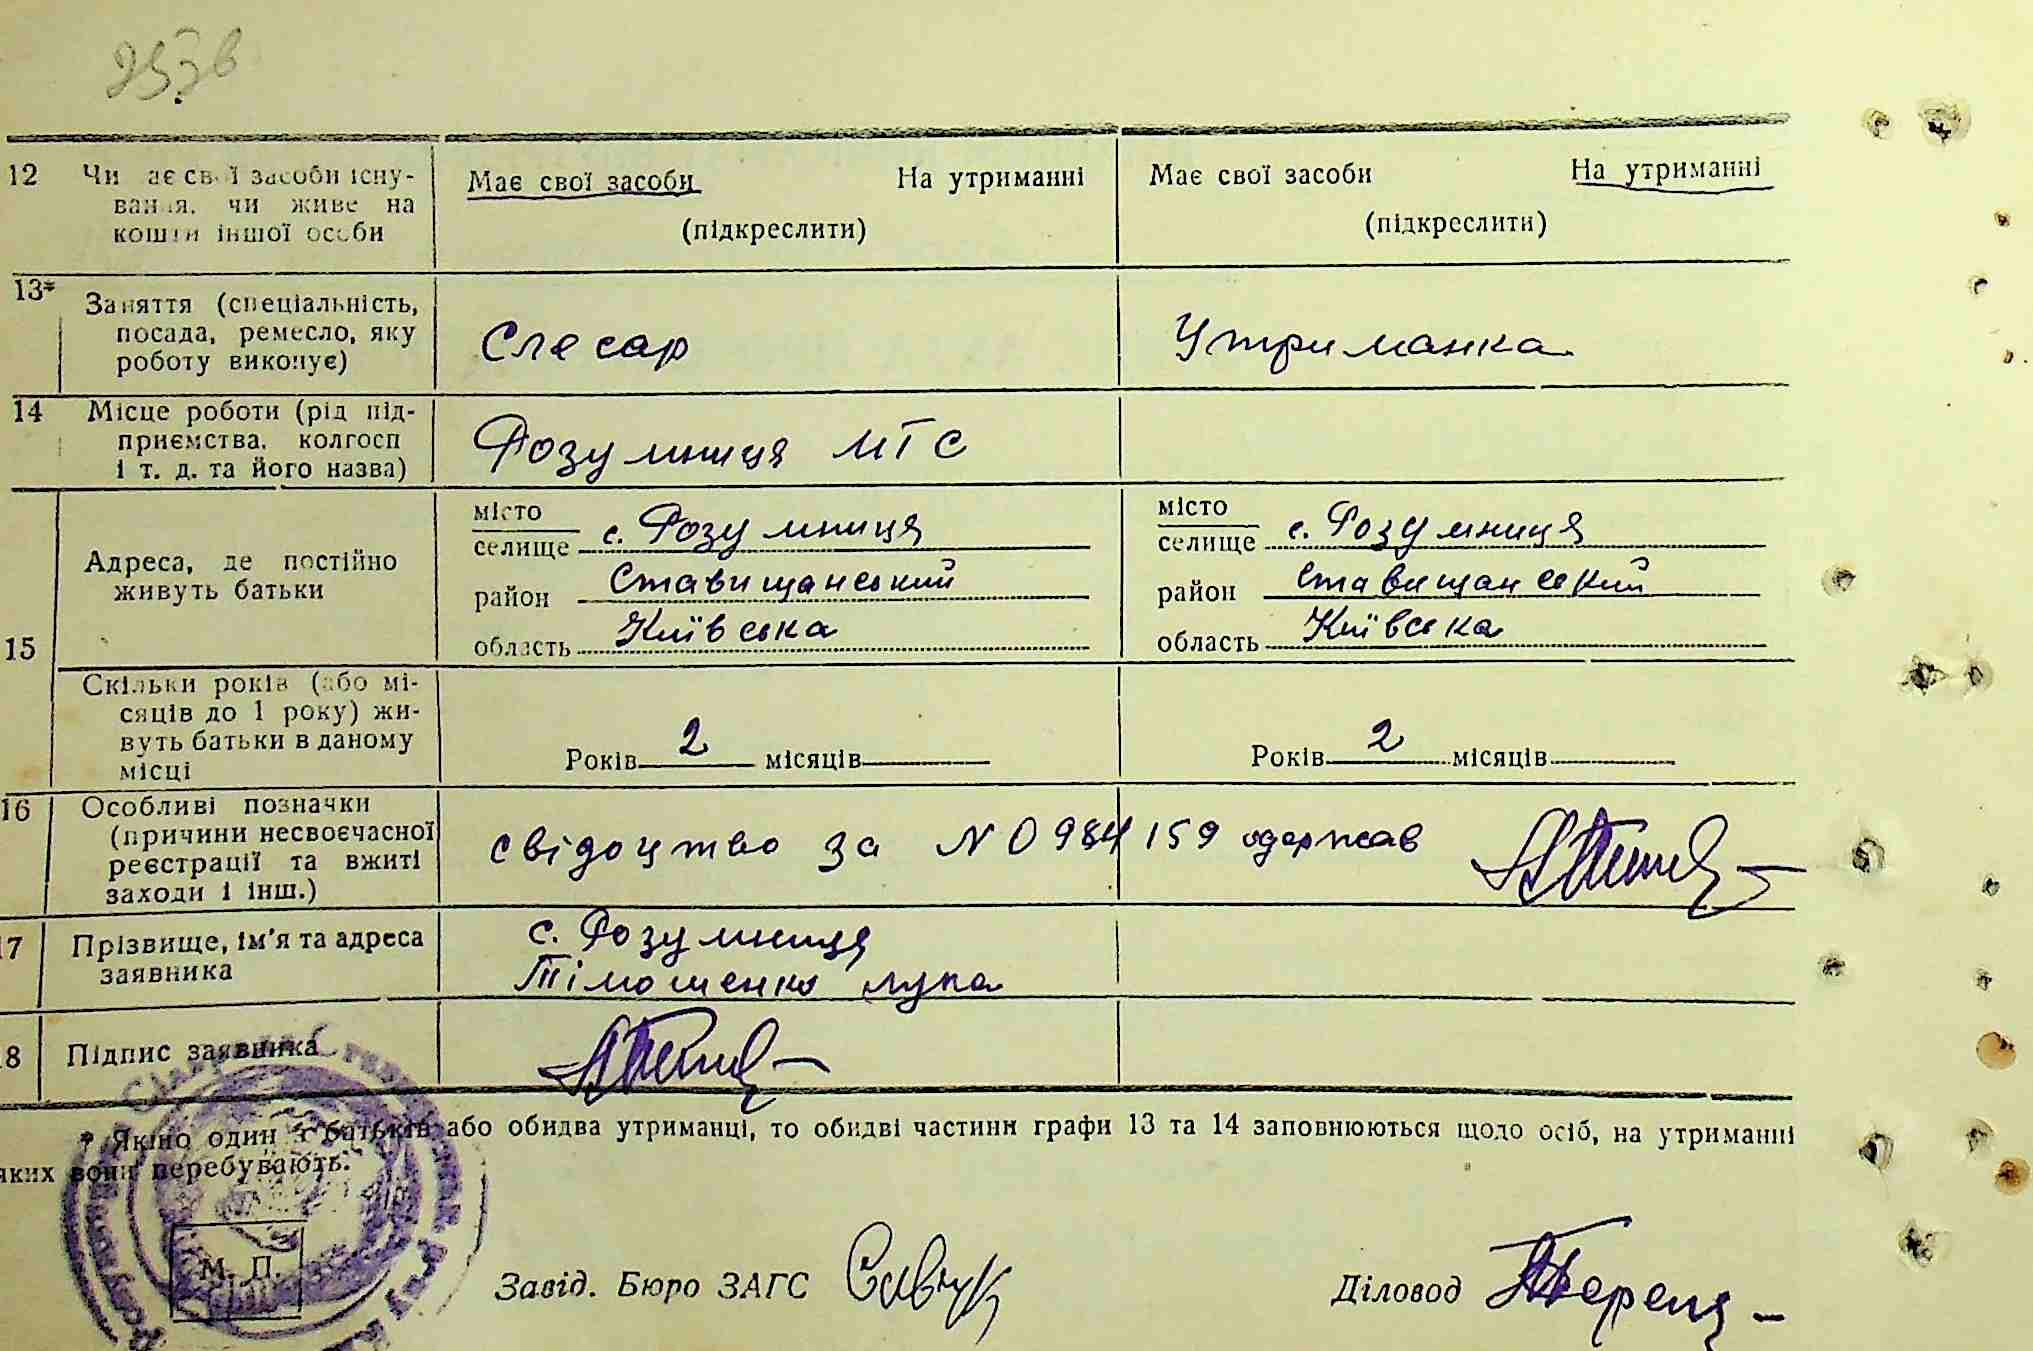 12 Чи має свої засоби існу- Має свої засоби На утриманні Має свої засоби На утриманні
вання, чи живе на
кошти іншої особи (підкреслити) (підкреслити)
13* Заняття (спеціальність,
посада, ремесло, яку Слесар Утриманка
роботу виконує)
14 Місце роботи (рід під-
приємства, колгосп Розумниця МТС
і т. д. та його назва)
місто місто
селище с. Розумниця селище с. Розумниця
Адреса, де постійно
живуть батьки район Ставищанський район Ставищанський
15 область Київська область Київська
Скільки років (або мі-
сяців до 1 року) жи-
вуть батьки в даному Років 2 місяців Років 2 місяців
місці
16 Особливі позначки
(причини несвоєчасної свідоцтво за N 0984159 одержав
реєстрації та вжиті
заходи і інш.)
17 Прізвище, ім'я та адреса с. Розумниця
заявника Тімошенко лупа
18 Підпис заявника
* Якщо один з батьків або обидва утриманці, то обидві частини графи 13 та 14 заповнюються щодо осіб, на утриманні
яких вони перебувають.
М. П.
Завід. Бюро ЗАГС Савчук Діловод